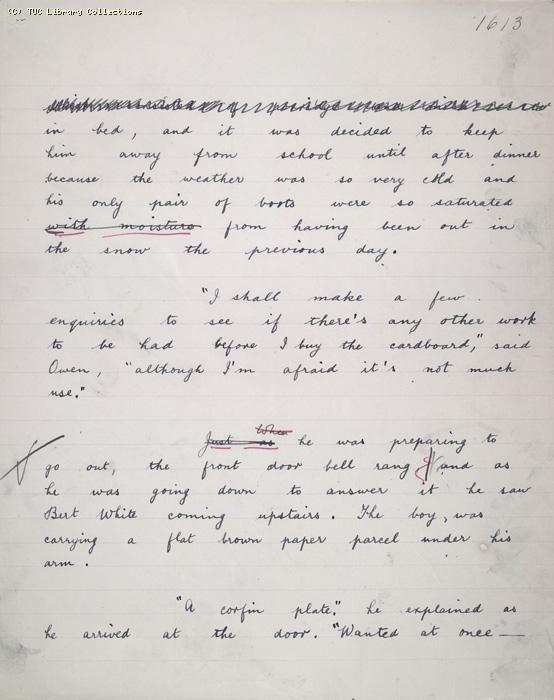 (C) TUC Library Collections
1613
in bed, and it was decided to keep
him away from school until after dinner
because the weather was so very cold and
his only pair of boots were so saturated
with moisture from having been out in
the snow the previous day.
"I shall make a few
enquiries to see if there's any other work
to be had before I buy the cardboard," said
Owen, "although I'm afraid it's not much
use."
When
Just as he was preparing to
go out, the front door bell rang and as
he was going down to answer it he saw
Bert White coming upstairs. The boy was
carrying a flat brown paper parcel under his
arm.
"A corfin plate." he explained as
he arrived at the door. "Wanted at once —